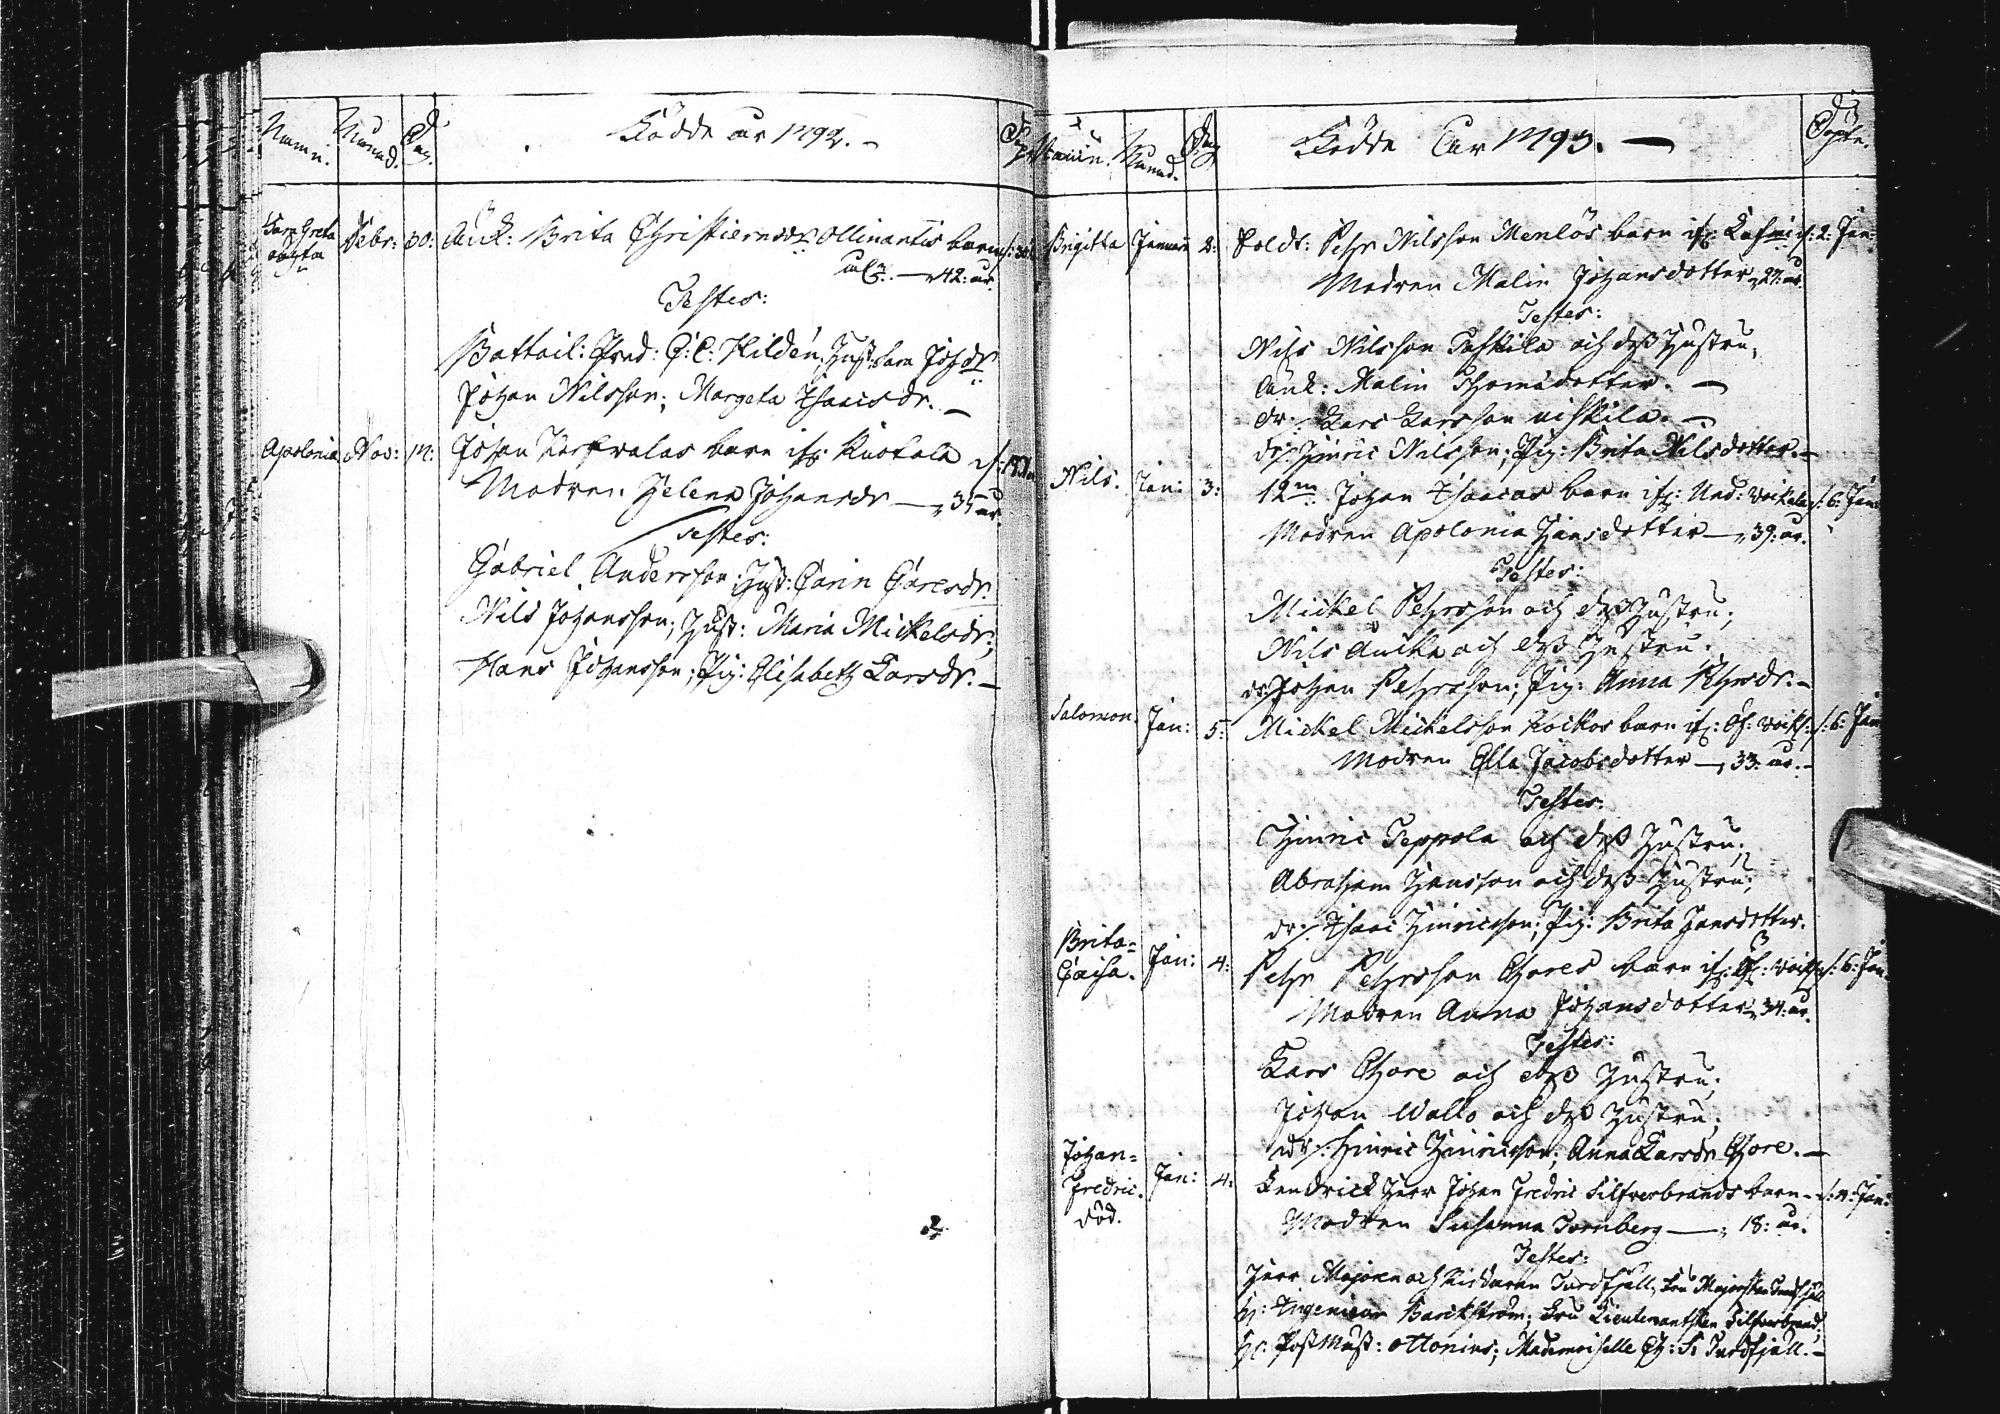 Namn.
Månad.
Dag.
Födde år 1792. –
Sara Greta
oächta
Febr: 30:
Änk: Brita Christiernsdr Ollinantis barn
42: år.
Testes:
Battail: Pred: G: C: Hildén; Hust: Sara Joh:dr
Johan Nilsson; Margeta Isaacsdr. –
Apolonia
Nov: 17:
Johan barn ifr: Kuotala
Modren Helena Johansdr — 35 år.
Testes:
Gabriel Andersson; Hust: Carin Carlsdr.
Nils Johansson; Hust: Maria Mickelsdr;
Hans Johansson; Pig: Elisabeth Larsdr. –
2
Namn.
Månad.
Dag
Födde År 1793. —
Döpte.
Brigitta
Januarii
2:
Soldt: Pehr Nilsson Menlös barn ifr: d: 2: Jan:
Modren Malin Johansdotter 27: år.
Testes:
Nils Nilsson Paskila och dess Hustru;
Änk: Malin Thomsdotter. –
dr: Lars Larsson –
dr: Hinric Nilsson; Pig: Brita Nilsdotter. –
Nils.
Jan:
3:
12m Johan Isaacas barn ifr: Ned: Woikala d: 6: Jan:
Modren Apolonia Hansdotter — 39: år.
Testes:
Mickel Pehrsson och dess Hustru;
Nils och dess Hustru.
dr: Johan Pehrsson; Pig: Anna Pehrsdr. –
Salomon.
Jan:
5:
Mickel Mickelsson Koikos barn ifr: Öf: Woik: d: 6: Jan
Modren Ella Jacobsdotter — 33: år. –
Testes:
Hinric Seppola och dess Hustru;
Abraham Hansson och dess Hustru;
dr: Isaac Hinricsson; Pig: Brita Hansdotter.
Brita=
Caisa.
Jan:
4:
Pehr Pehrsson Chores barn ifr: Öf: Woik: d: 6: Jan.
Modren Anna Johansdotter 34: år.
Testes:
Lars Chore och dess Hustru;
Johan Wallo och dess Hustru;
dr: Hinric Hinricsson; Anna Larsdr Chore. –
Johan=
Fredric.
död.
Jan:
4:
Fendrick Herr Johan Fredric Silfverbrands barn d: 4: Jan:
Modren Susanna Tornberg — 18: år.
Testes:
Herr Majoren och Riddaren Turdfjäll, Fru Majorskan Turdfjäll
H: Ingenieur Barckström; Fru Lieutenantskan Silfverbrand;
H: PostMäst: Ottonius; Mademoiselle Ch: S: Turdfjäll. –